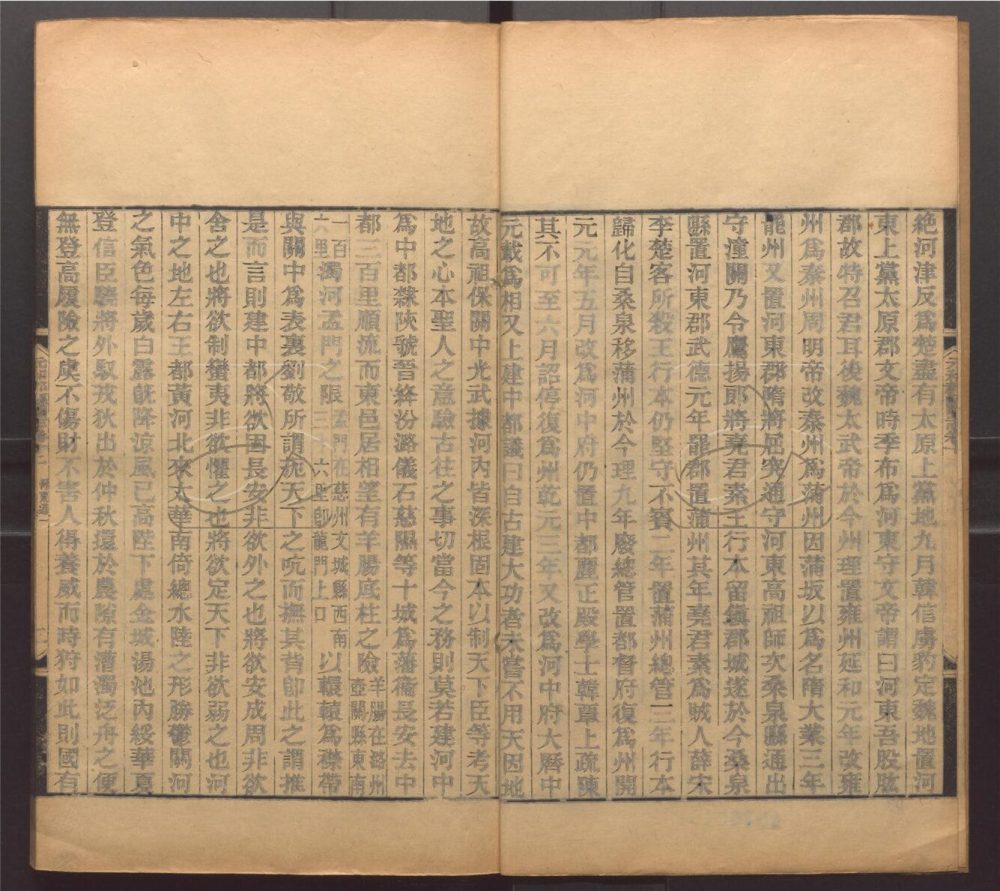 絶河津反爲楚盡有太原上黨地九月韓信虜豹定魏地置河
東上黨太原郡文帝時季布爲河東守文帝謂曰河東吾股肱
郡故特召君耳後魏太武帝於今州理置雍州延和元年改雍
州爲秦州周明帝改秦州爲蒲州因蒲坂以爲名隋大業三年
罷州又置河東郡隋將屈突通守河東高祖師次桑泉縣通出
守潼關乃令鷹揚郎將堯君素王行本留鎮郡城遂於今桑泉
縣置河東郡武德元年罷郡置蒲州其年堯君素爲賊人薛宗
李楚客所殺王行本仍堅守不賓二年置蒲州總管三年行本
歸化自桑泉移蒲州於今理九年廢總管置都督府復爲州開
元元年五月改爲河中府仍置中都麗正殿學士韓覃上疏陳
其不可至六月詔停復爲州乾元三年又改爲河中府大曆中
元載爲相又上建中都議曰自古建大功者未嘗不用天因地
故高祖保關中光武據河內皆深根固本以制天下臣等考天
地之心本聖人之意驗古往之事切當今之務則莫若建河中
爲中都隸陝虢晉絳汾潞儀石慈隰等十城爲藩衞長安去中
都三百里順流而東邑居相望有羊腸底柱之險羊腸在潞州壺關縣東南
一百六里濁河孟門之限孟門在慈州文城縣西南三十六里卽龍門上口以轘轅爲襟帶
與關中爲表裏劉敬所謂扼天下之吭而撫其背卽此之謂推
是而言則建中都將欲固長安非欲外之也將欲安成周非欲
舍之也將欲制蠻夷非欲懼之也將欲定天下非欲弱之也河
中之地左右王都黃河北來太華南倚總水陸之形勝鬱關河
之氣色每歲白露旣降涼風已高陛下處金城湯池內綏華夏
登信臣驍將外馭戎狄出於仲秋還於農隙有漕濁泛舟之便
無登高履險之虞不傷財不害人得養威而時狩如此則國有